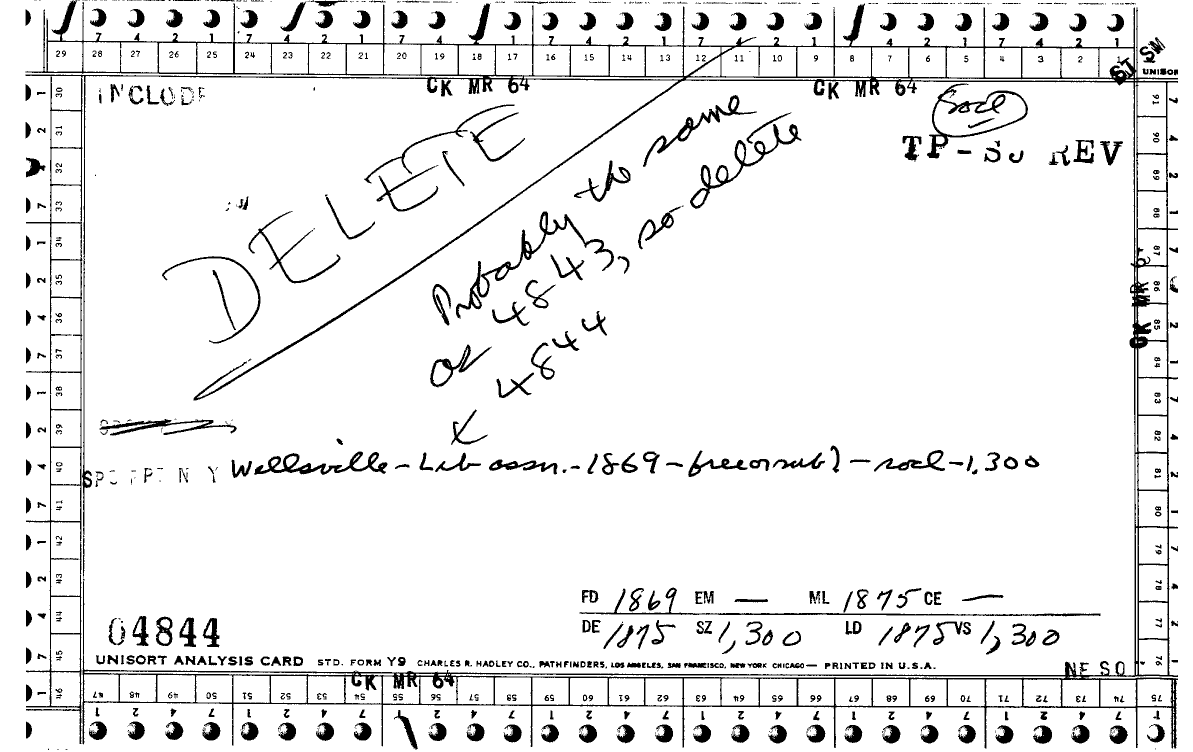 7 4 2 1 7 4 2 1 7 4 2 1 7 4 2 1 7 4 2 1
29 28 27 26 25 24 23 22 21 20 19 18 17 16 15 14 13 12 11 10 9 8 7 6 5 4 3 2
ST SM
UNISOR
INCLUDE
CK MR 64
CK MR 64
socl
TP-SU REV
DELETE
Probably the same
as 4843, so delete
4844
CK MR 6
Wellsville-Lib assn.-1869-free(orsub?)-socl-1,300
FD 1869 EM — ML 1875 CE —
DE 1875 SZ 1,300 LD 1875 VS 1,300
04844
UNISORT ANALYSIS CARD STD. FORM Y9 CHARLES R. HADLEY CO., PATHFINDERS, LOS ANGELES, SAN FRANCISCO, NEW YORK CHICAGO — PRINTED IN U.S.A.
NE SO
CK MR 64
30 31 32 33 34 35 36 37 38 39 40 41 42 43 44 45 46
47 48 49 50 51 52 53 54 55 56 57 58 59 60 61 62 63 64 65 66 67 68 69 70 71 72 73 74 75
76 77 78 79 80 81 82 83 84 85 86 87 88 89 90 91